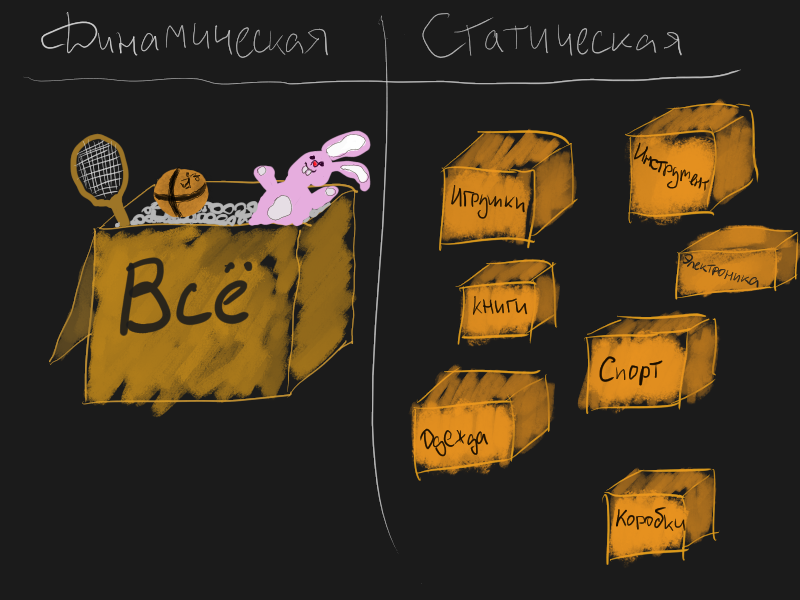 Динамическая
Статическая
Всё
Игрушки
Инструмент
Электроника
книги
Спорт
Одежда
Коробки